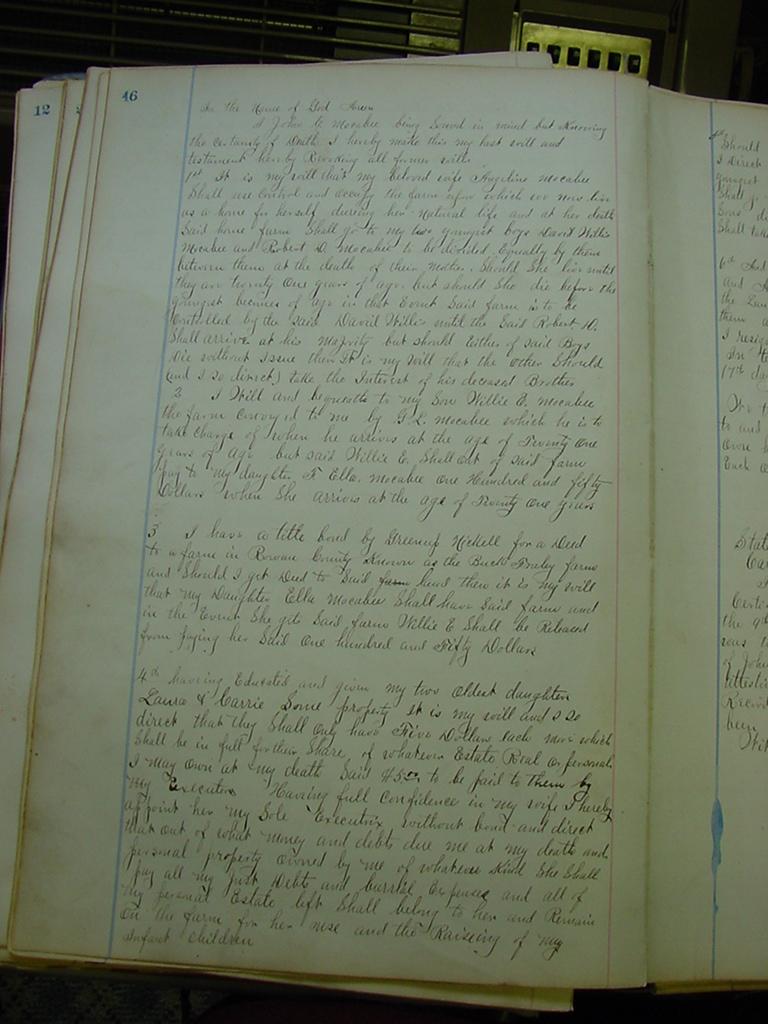 12
46
In the Name of God Amen
I John C. Mocabee being Sound in mind but Knowing
the certainty of Death I hereby make this my last will and
testament hereby Revoking all former wills
1st It is my will that my beloved wife Angeline Mocabee
Shall use Control and occupy the farm upon which we now live
as a home for herself dureing her natural life and at her death
Said home farm Shall go to my two youngest boys David Willis
Mocabee and Robert D. Mocabee to be divided Equally by them
between them at the death of their Mother. Should She live until
they are twenty One years of age. but should She die before the
youngest becimes of age in that Event Said farm is to be
Controlled by the said David Willis until the Said Robert D.
Shall arrive at his majority but should Either of Said Boys
Die without Issue then It is my Will that the other Should
(and I so direct) take the Interest of his deceased Brother
2 I Will and bequeathe to my Son Willie E. Mocabee
the farm conveyed to me by G. L. Mocabee which he is to
take charge of when he arrives at the age of Twenty One
years of Age but said Willie E. Shall Out of Said farm
pay to my daughter F Ella. Mocabee One Hundred and fifty
Dollars when She arrives at the age of Twenty One years
3 I have a title bond by Greenup Nickell for a Deed
to a farm in Rowan County Known as the Buck Fraley farm
and Should I get Deed to Said farm land then it is my will
that my Daughter Ella Mocabee Shall have Said farm and
in the Event She gets Said farm Willie E Shall be Released
from paying her Said One hundred and Fifty Dollars
4th having Educated and given my two oldest daughters
Laura & Carrie Some property it is my will and I so
direct that they Shall Only have Five Dollars each more which
Shall be in full for their Share of whatever Estate Real or personal
I may own at my death Said $5.00 to be paid to them by
my Executors Having full Confidence in my wife I hereby
appoint her my Sole Executrix without bond and direct
that out of what money and debts due me at my death and
personal property owned by me of whatever Kind She Shall
pay all my Just Debts and burrial Expenses and all of
my personal Estate left Shall belong to her and Remain
On the farm for her use and the Raiseing of my
Infant children
Should
I direct
youngest
Shall go
Sons
Shall take
6th
and
the
them
I
17th da
to and
Own
Each
State
the 9th
of John
attesti
been